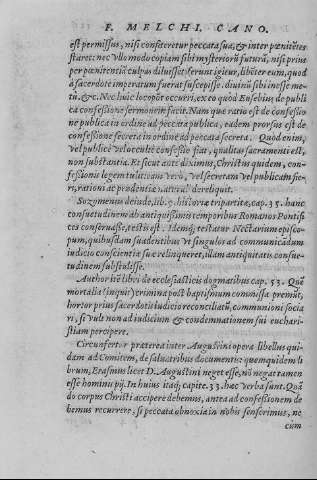 F. MELCHI. CANO.
est permissus, nisi confiteretur peccata sua, & inter pœnitẽtes
staret: nec vllo modo copiam sibi mysteriorũ futurã, nisi prius
per pœnitentiã culpas diluisset: ferunt igitur, libẽter eum, quod
à sacerdote imperatum fuerat suscepisse. diuinũ sibi inesse me-
tũ. &c. Nec huic loco põt occurri, ex eo quod Eusebius de publi
ca confessione sermonem facit. Nam quæ ratio est de confessio
ne publica in ordine ad peccata publica, eadem prorsus est de
confessione secreta in ordine ad peccata secreta. Quod enim,
vel publicè vel occultè confessio fiat, qualitas sacramenti est,
non substantia. Et sicut ante diximus, Christus quidem, con-
fessionis legem tulit: eam verò, vel secretam vel publicam fie-
ri, rationi ac prudentiæ naturali dereliquit.
Sozymenus deinde, lib. 9. historiæ tripartitæ, cap. 35. hanc
consuetudinem ab antiquissimis temporibus Romanos Pontifi
ces conseruasse, testis est. Idemq́; testatur Nectarium episco-
pum, quibusdam suadentibus vt singulos ad communicãdum
iudicio conscientiæ suæ relinqueret, illam antiquitatis consue-
tudinem substulisse.
Author itẽ libri de ecclesiasticis dogmatibus cap. 53. Quẽ
mortalia (inquit) crimina post baptismum commissa premũt,
hortor prius sacerdotis iudicio reconciliatũ, communioni socia
ri, si vult non ad iudicium & condemnationem sui euchari-
stiam percipere.
Circunfertur præterea inter Augustini opera libellus qui-
dam ad Comitem, de salutaribus documentis: quem quidem li
brum, Erasmus licet D. Augustini neget esse, nõ negat tamen
esse hominis pij. In huius itaq; capite. 33. hæc verba sunt. Quã
do corpus Christi accipere debemus, antea ad confessionem de
bemus recurrere, si peccata obnoxia in nobis senserimus, ne
cùm